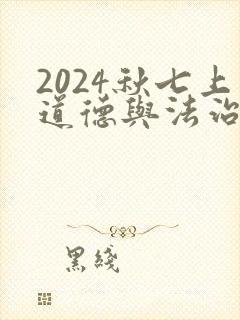 2024秋七上
道德與法治
黑綫